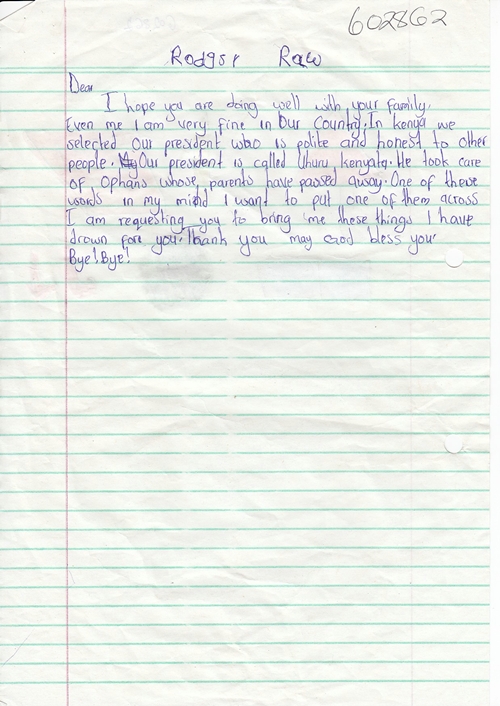 602862
Rodger Raw
Dear
I hope you are doing well with your family.
Even me I am very fine in Our Country. In kenya we
selected Our president who is polite and honest to other
people. Our president is called Uhuru kenyata. He took care
of Ophans whose parents have passed away. One of these
words in my mind I want to put one of them across
I am requesting you to bring me these things I have
drown for you. Thank you may God bless your
Bye! Bye!